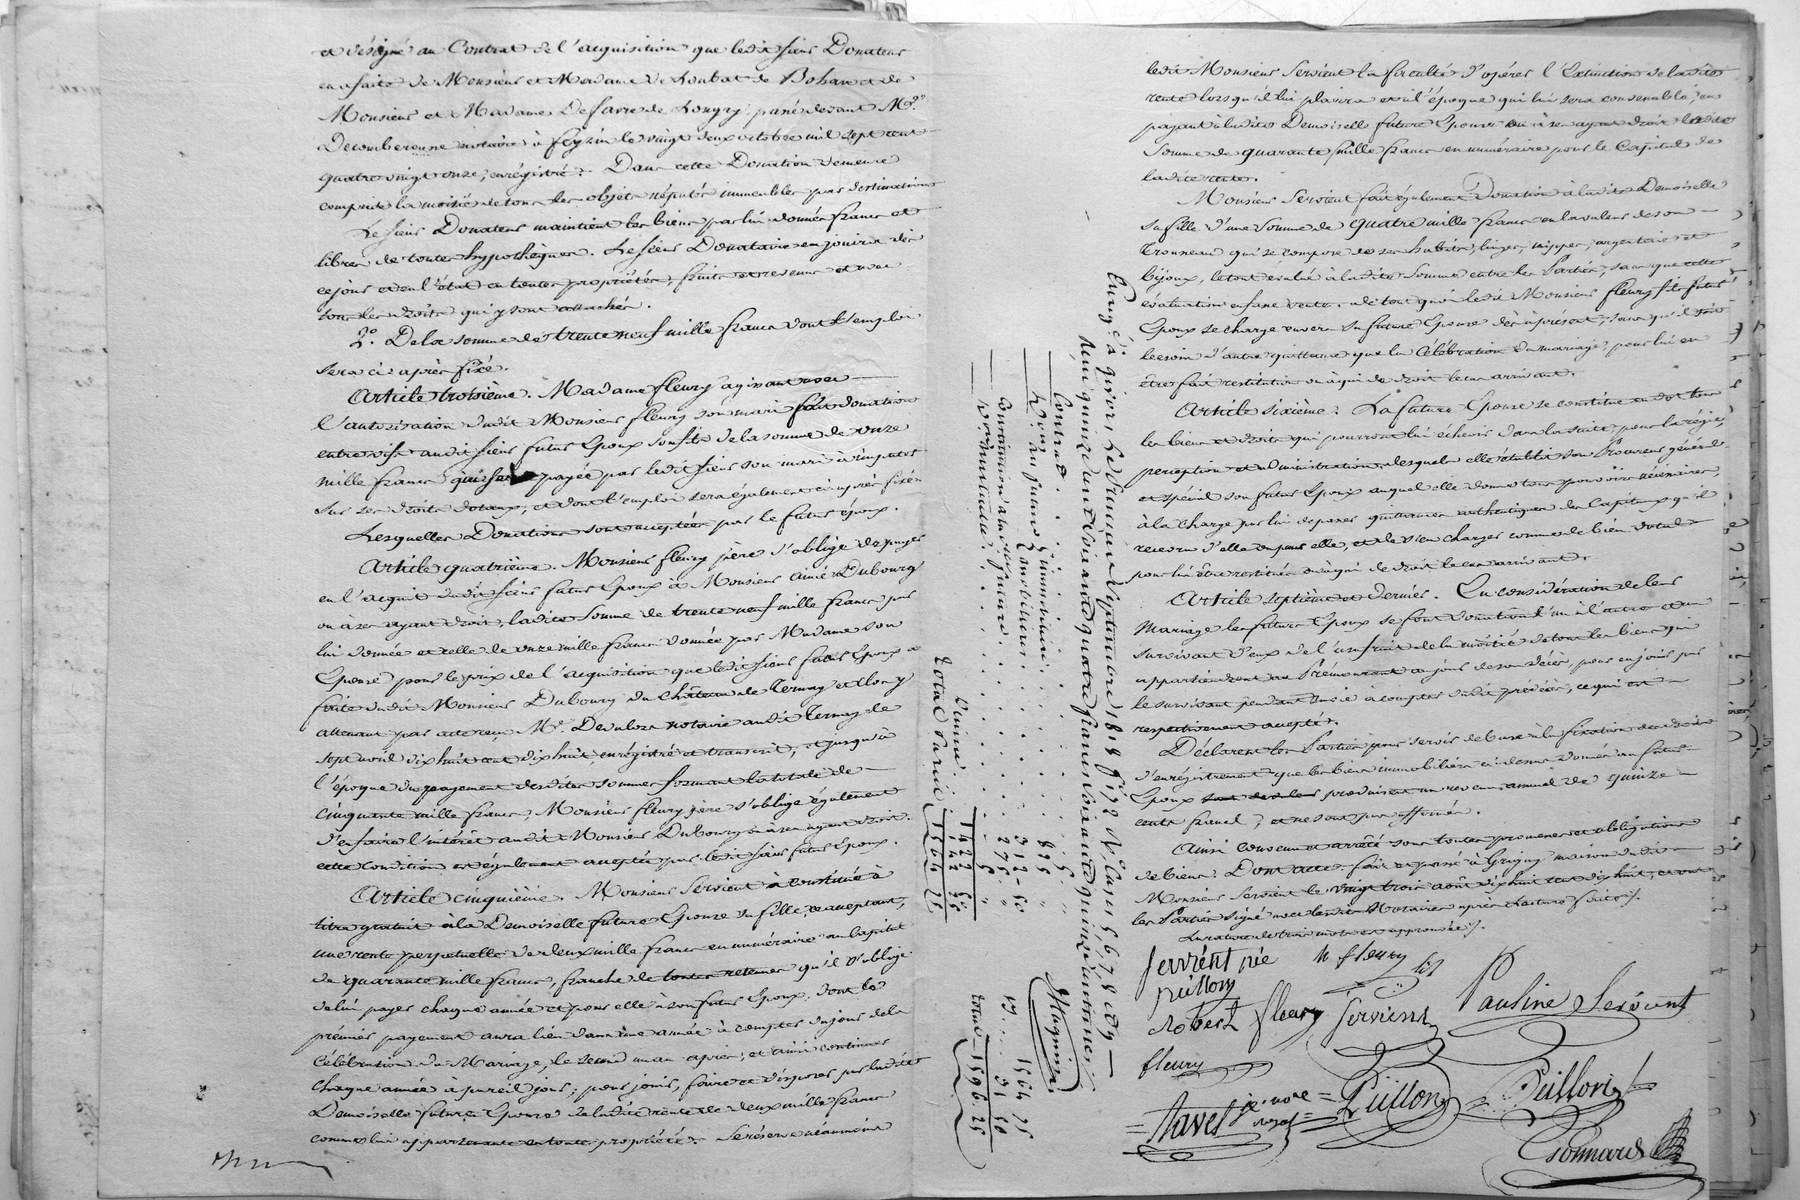 et désigné au Contrat de l'acquisition que ledit sieur Donateur
en a faite de Monsieur et Madame de Loubat de Bohan et de
Monsieur et Madame Defavre de Longry, passé devant Me.
Decombereusse notaire à feyzin le vingt deux octobre mil sept cent
quatre vingt onze, enrégistré. Dans cette Donation demeure
comprise la moitié de tous les objets réputés immeubles par destination
Le sieur Donateur maintient les biens par lui donnés francs et
libres de toutes hypothèques. Le sieur Donataire en jouira dès
ce jour et en l'état en toutes propriétés, fruits et revenus et avec
tous les droits qui y sont attachés.
2o. De la somme de trente neuf mille francs dont l'emploi
sera ci après fixé.
Article troisième. Madame fleury agissant avec
l'autorisation dudit Monsieur fleury son mari fait donation
entre vifs audit sieur futur Epoux son fils de la somme de onze
mille francs qui sera payée par ledit sieur son mari à imputer
sur ses droits dotaux, et dont l'emploi sera également ci après fixé.
Lesquelles Donations sont acceptées par le futur époux.
Article quatrième. Monsieur fleury père s'oblige de payer
en l'acquit dudit sieur futur Epoux à Monsieur aimé Dubourg
ou à ses ayant droit, ladite somme de trente neuf mille francs par
lui donnée et celle de onze mille francs donnée par Madame son
Epouse pour le prix de l'acquisition que ledit sieur futur Epoux a
faite dudit Monsieur Dubourg du Château de Ternay et clos y
attenant par acte reçu Me. Devaloza notaire audit Ternay le
sept avril dix huit cent dix huit, enrégistré et transcrit, et jusqu'à
l'époque du payement desdites sommes formant la totale de
cinquante mille francs, Monsieur fleury père s'oblige également
d'en faire l'intérêt audit Monsieur Dubourg ou à ses ayant droit.
cette condition est également acceptée par ledit sieur futur Epoux.
Article cinquième. Monsieur Servient a constitué à
titre gratuit à la Demoiselle future Epouse sa fille, ce acceptant,
une rente perpétuelle de deux mille francs en numéraire au capital
de quarante mille francs, franche de toutes retenues qu'il s'oblige
de lui payer chaque année et pour elle à son futur Epoux, dont le
premier payement aura lieu dans une année à compter du jour de la
célébration du Mariage, le second un an après, et ainsi continuer
chaque année à pareil jour; pour jouir, faire et disposer par ladite
Demoiselle future Epouse de ladite rente de deux mille francs
comme lui appartenante en toute propriété. Se réserve néanmoins
ledit Monsieur Servient la faculté d'opérer l'Extinction de ladite
rente lorsqu'il lui plaira et à l'époque qui lui sera convenable, en
payant à ladite Demoiselle future Epouse ou à ses ayant droit ladite
somme de quarante mille francs en numéraire pour le Capital de
ladite rente.
Monsieur Servient fait également Donation à ladite Demoiselle
sa fille d'une somme de quatre mille francs en la valeur de son
Trousseau qui se compose de ses habits, linges, nippes, argenterie et
bijoux, le tout évalué à ladite somme entre les Parties, sans que cette
évaluation en fasse vente. de tout quoi ledit Monsieur fleury fils futur
Epoux se charge envers sa future Epouse dès à présent, sans qu'il soit
besoin d'autre quittance que la Célébration du mariage, pour lui en
être fait restitution ou à qui de droit le cas arrivant.
Article sixième. La future Epouse se constitue en dot tous
les biens et droits qui pourront lui échoir dans la suite, pour la régie,
perception et administration desquels elle établit son Procureur général
et spécial son futur Epoux auquel elle donne tous pouvoirs nécessaires,
à la charge par lui de passer quittances authentiques des Capitaux qu'il
recevra d'elle ou pour elle, et de s'en charger comme de bien dotal
pour lui être restitués ou à qui de droit le cas arrivant.
Article septième et dernier. En considération de leur
Mariage les futurs Epoux se font donation l'un à l'autre et au
survivant d'eux de l'usufruit de la moitié de tous les biens qui
appartiendront au Prémourant au jour de son décès, pour en jouir par
le survivant pendant sa vie à compter dudit précès, ce qui est
respectivement accepté.
Déclarent les Parties pour servir de base à la fixation des droits
d'enrégistrement que les biens immobiliers ci dessus donnés au futur
Epoux produisent un revenu annuel de quinze
cents francs, et ne sont pas affermés.
Ainsi convenu et arrêté sous toutes promesses et obligations
de biens. Dont acte. fait et passé à Grigny maison dudit
Monsieur Servient le vingt trois août dix huit cent dix huit, et ont
les Parties signé avec lesdits Notaires après lecture faite.
La rature de trois mots est approuvée.
servient père N fleury fils
puillon
Robert fleury servient Pauline Servient
fleury
Navet Puillon Puillon
Gonnard
Enreg.é à givors le deux Septembre 1818 fo. 172 Vo. Cases 5, 6, 7, 8
Reçu quinze cent soixante quatre francs soixante quinze centimes
Contrat . . . 5 "
Don au futur { immobilier . . 825 "
mobilier . . 312 - 50
Donation à la future . . 275 "
5 "
1422 50
Dixième . . 142 25
Total du reçu { 1564 75
Magnin
1564 75
31 50
total 1596. 25